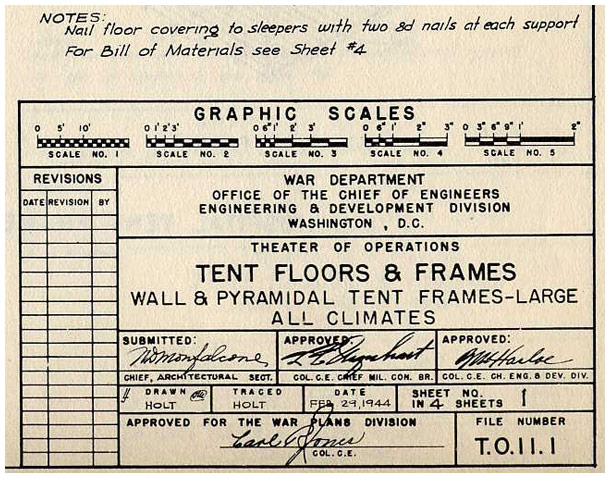 NOTES:
Nail floor covering to sleepers with two 8d nails at each support
For Bill of Materials see Sheet #4
GRAPHIC SCALES
0 5' 10'
SCALE NO. 1
0 1' 2' 3'
SCALE NO. 2
0 6" 1' 2' 3'
SCALE NO. 3
0 6" 1' 2'
SCALE NO. 4
0 3" 6" 9" 1' 2"
SCALE NO. 5
REVISIONS
DATE REVISION BY
WAR DEPARTMENT
OFFICE OF THE CHIEF OF ENGINEERS
ENGINEERING & DEVELOPMENT DIVISION
WASHINGTON, D.C.
THEATER OF OPERATIONS
TENT FLOORS & FRAMES
WALL & PYRAMIDAL TENT FRAMES-LARGE
ALL CLIMATES
SUBMITTED:
CHIEF, ARCHITECTURAL SECT.
APPROVED:
COL. C.E. CHIEF MIL. CON. BR.
APPROVED:
COL. C.E. CH. ENG. & DEV. DIV.
DRAWN
HOLT
TRACED
HOLT
DATE
FEB. 29, 1944
SHEET NO. 1
IN 4 SHEETS
APPROVED FOR THE WAR PLANS DIVISION
COL. C.E.
FILE NUMBER
T.O.11.1